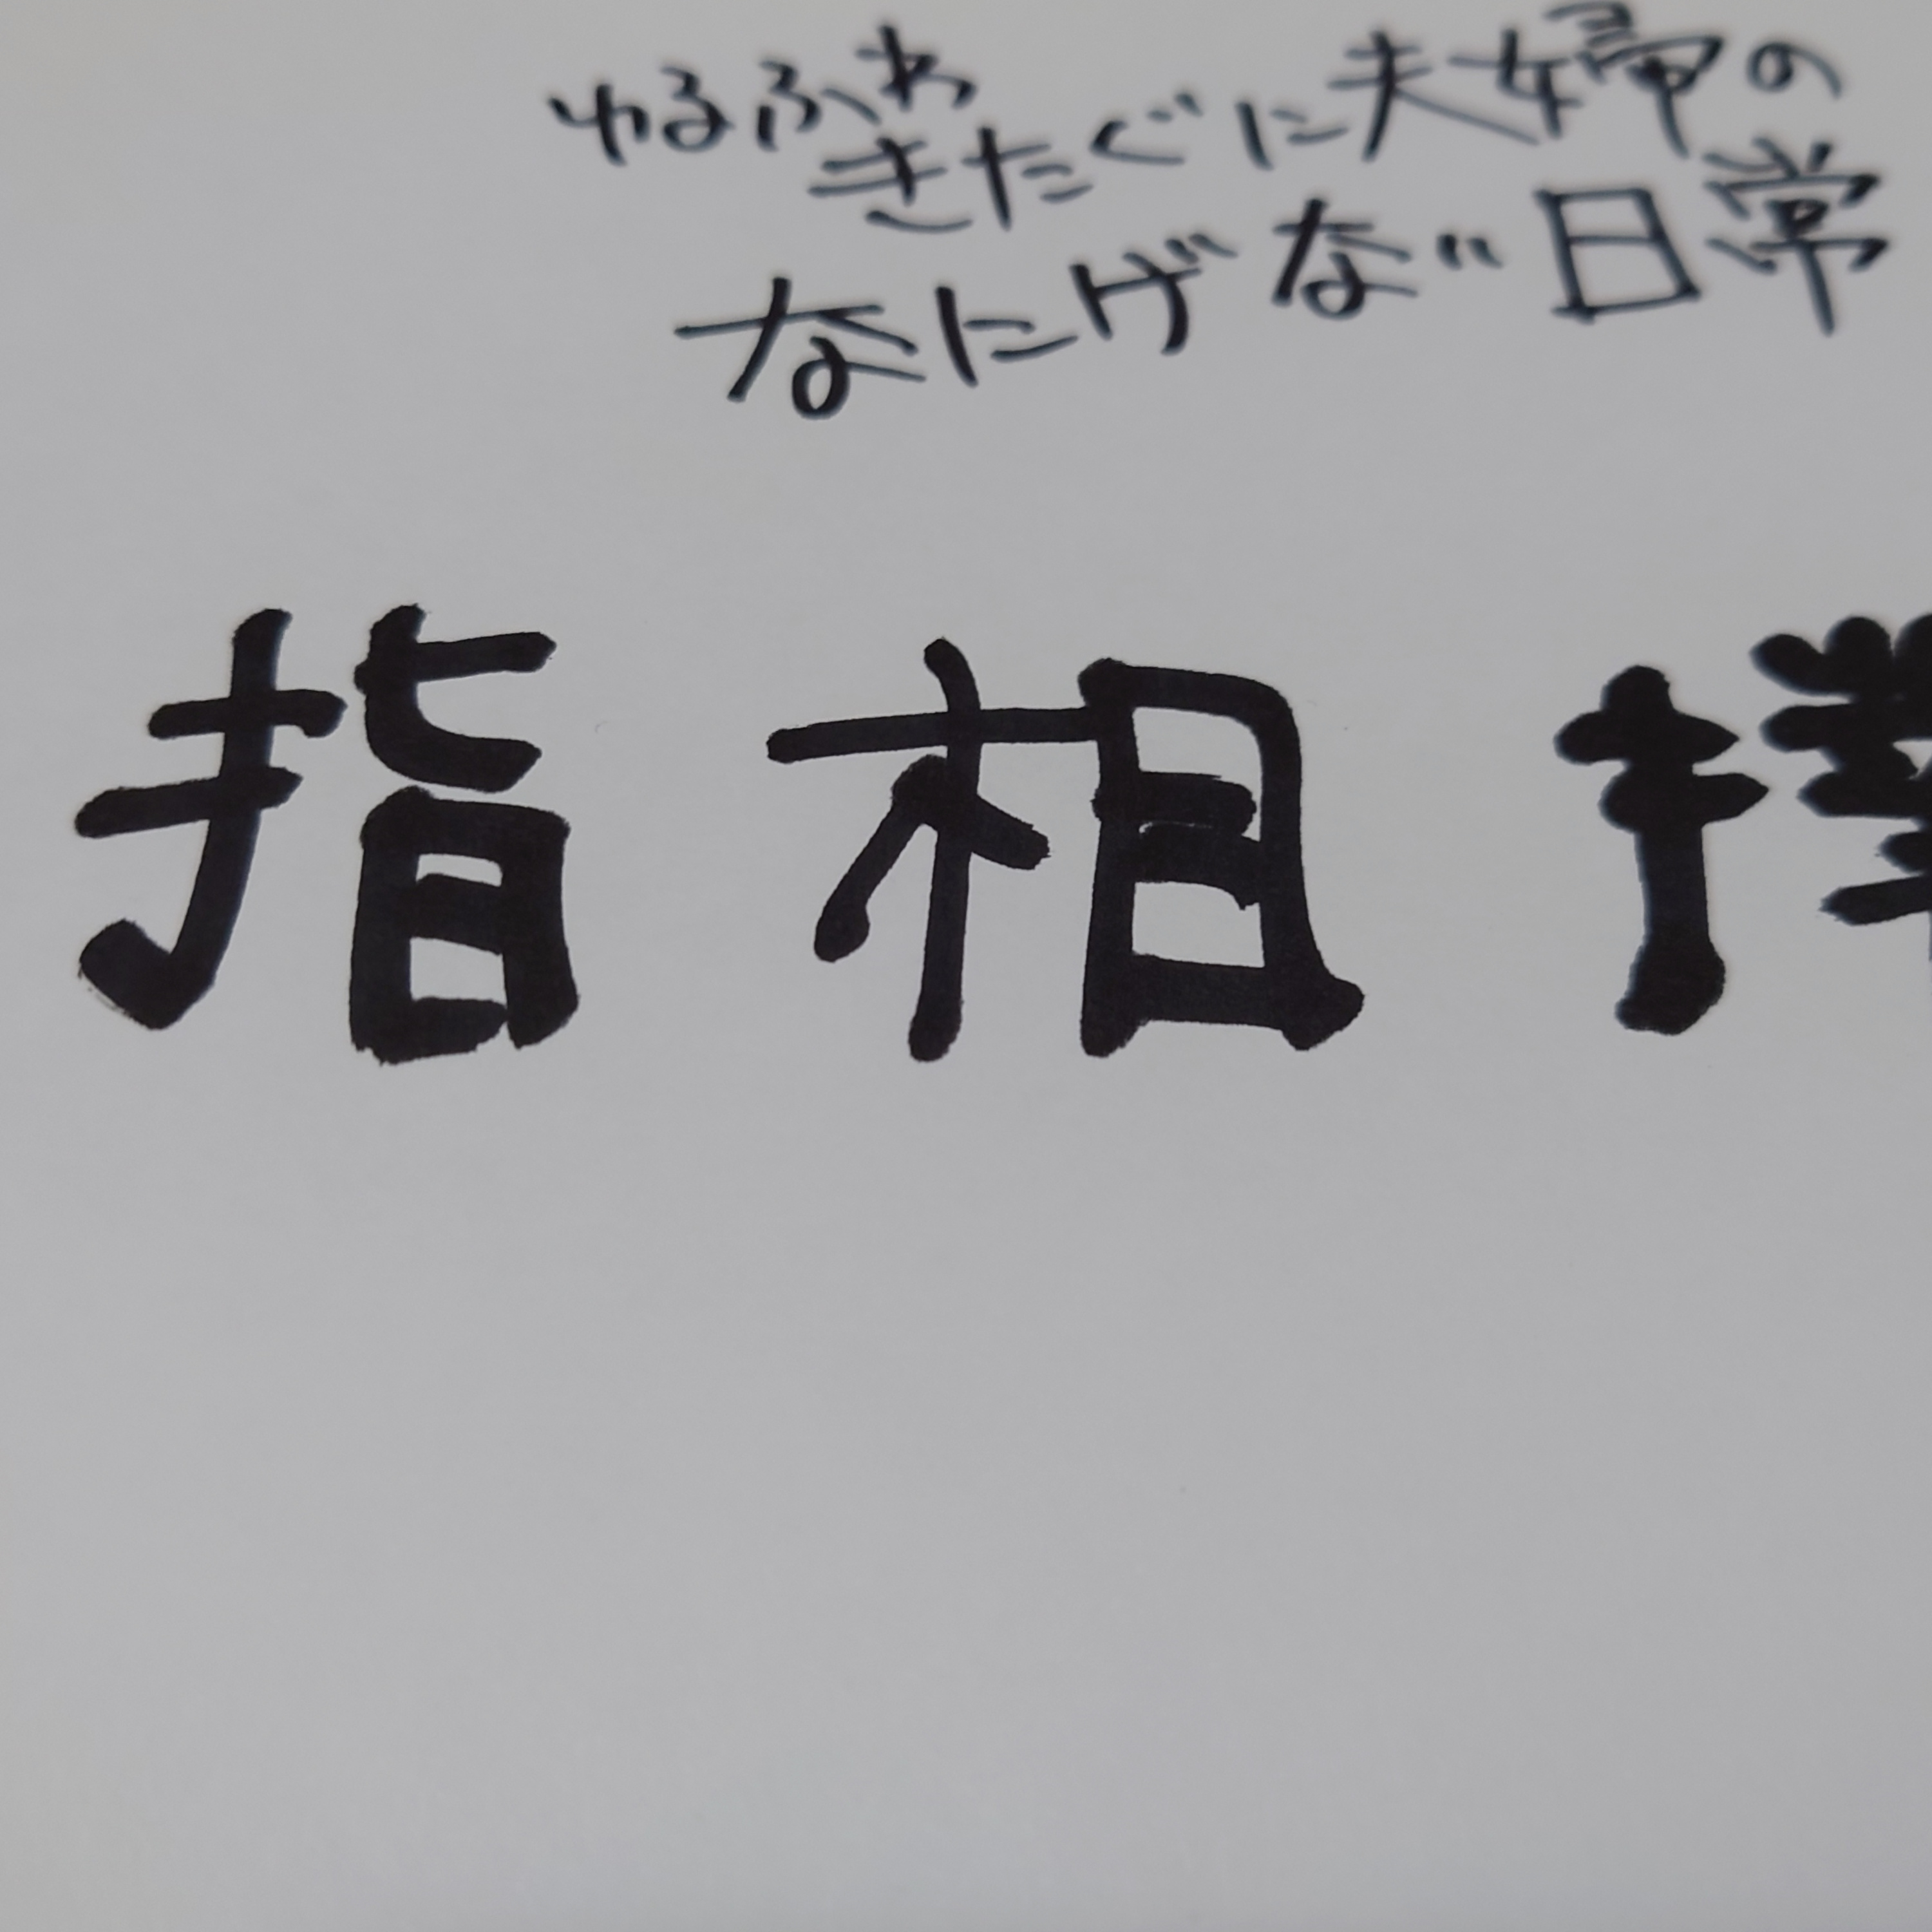 ゆるふわ
きたぐに夫婦の
なにげな〃日常
指相撲